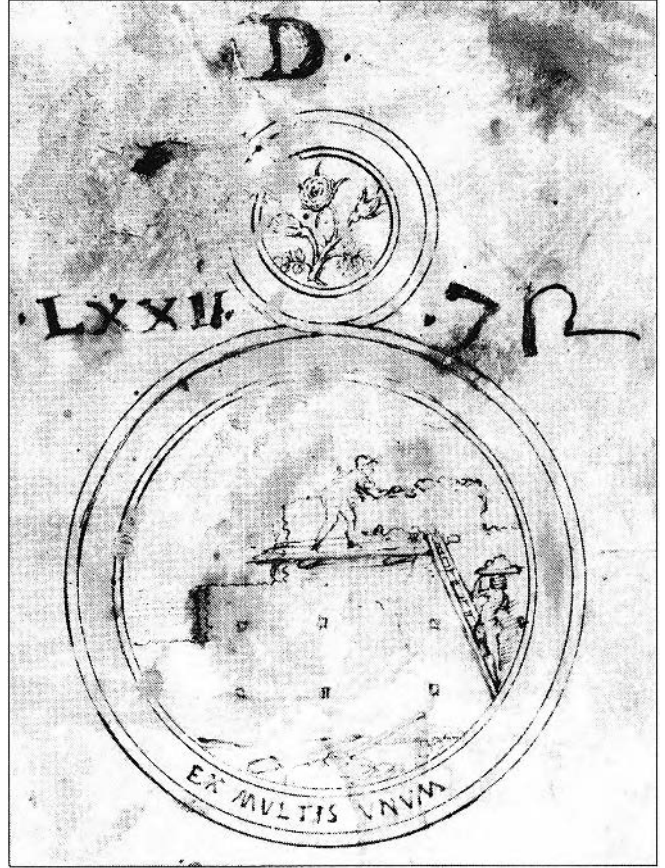 D.
.LXXII. .7 R
EX MVLTIS VNVM